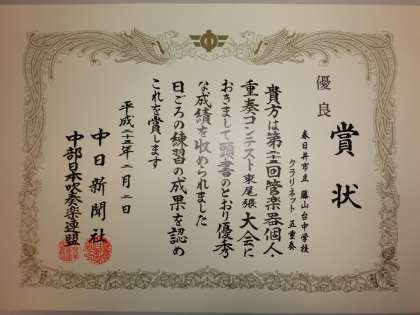 優良
賞状
春日井市立 藤山台中学校
クラリネット 五重奏
貴方は第二十五回管楽器個人・
重奏コンテスト東尾張大会に
おきまして頭書のとおり優秀
な成績を収められました
日ごろの練習の成果を認め
これを賞します
平成二十五年二月二日
中日新聞社
中部日本吹奏楽連盟